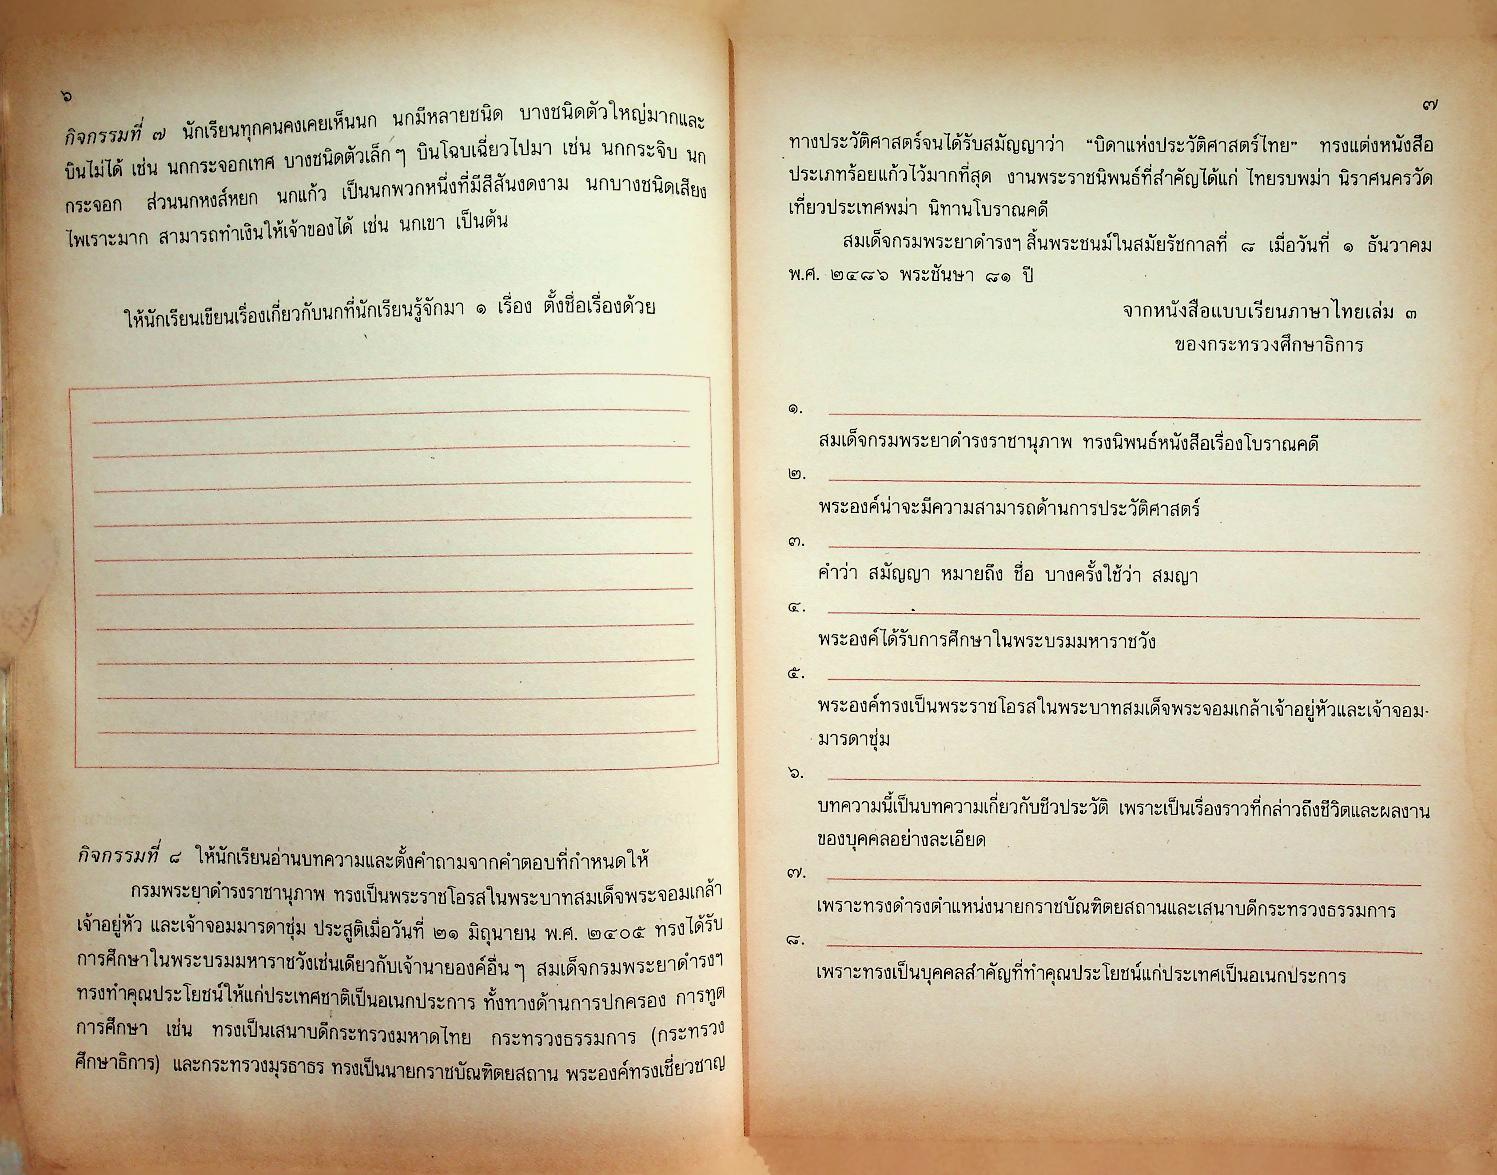 ๖
กิจกรรมที่ ๗ นักเรียนทุกคนคงเคยเห็นนก นกมีหลายชนิด บางชนิดตัวใหญ่มากและ
บินไม่ได้ เช่น นกกระจอกเทศ บางชนิดตัวเล็ก ๆ บินโฉบเฉี่ยวไปมา เช่น นกกระจิบ นก
กระจอก ส่วนนกหงส์หยก นกแก้ว เป็นนกพวกหนึ่งที่มีสีสันงดงาม นกบางชนิดเสียง
ไพเราะมาก สามารถทำเงินให้เจ้าของได้ เช่น นกเขา เป็นต้น
ให้นักเรียนเขียนเรื่องเกี่ยวกับนกที่นักเรียนรู้จักมา ๑ เรื่อง ตั้งชื่อเรื่องด้วย
กิจกรรมที่ ๘ ให้นักเรียนอ่านบทความและตั้งคำถามจากคำตอบที่กำหนดให้
กรมพระยาดำรงราชานุภาพ ทรงเป็นพระราชโอรสในพระบาทสมเด็จพระจอมเกล้า
เจ้าอยู่หัว และเจ้าจอมมารดาชุ่ม ประสูติเมื่อวันที่ ๒๑ มิถุนายน พ.ศ. ๒๔๐๕ ทรงได้รับ
การศึกษาในพระบรมมหาราชวังเช่นเดียวกับเจ้านายองค์อื่น ๆ สมเด็จกรมพระยาดำรงฯ
ทรงทำคุณประโยชน์ให้แก่ประเทศชาติเป็นอเนกประการ ทั้งทางด้านการปกครอง การทูต
การศึกษา เช่น ทรงเป็นเสนาบดีกระทรวงมหาดไทย กระทรวงธรรมการ (กระทรวง
ศึกษาธิการ) และกระทรวงมุรธาธร ทรงเป็นนายกราชบัณฑิตยสถาน พระองค์ทรงเชี่ยวชาญ
๗
ทางประวัติศาสตร์จนได้รับสมัญญาว่า "บิดาแห่งประวัติศาสตร์ไทย" ทรงแต่งหนังสือ
ประเภทร้อยแก้วไว้มากที่สุด งานพระราชนิพนธ์ที่สำคัญได้แก่ ไทยรบพม่า นิราศนครวัด
เที่ยวประเทศพม่า นิทานโบราณคดี
สมเด็จกรมพระยาดำรงฯ สิ้นพระชนม์ในสมัยรัชกาลที่ ๘ เมื่อวันที่ ๑ ธันวาคม
พ.ศ. ๒๔๘๖ พระชันษา ๘๑ ปี
จากหนังสือแบบเรียนภาษาไทยเล่ม ๓
ของกระทรวงศึกษาธิการ
๑.
สมเด็จกรมพระยาดำรงราชานุภาพ ทรงนิพนธ์หนังสือเรื่องโบราณคดี
๒.
พระองค์น่าจะมีความสามารถด้านการประวัติศาสตร์
๓.
คำว่า สมัญญา หมายถึง ชื่อ บางครั้งใช้ว่า สมญา
๔.
พระองค์ได้รับการศึกษาในพระบรมมหาราชวัง
๕.
พระองค์ทรงเป็นพระราชโอรสในพระบาทสมเด็จพระจอมเกล้าเจ้าอยู่หัวและเจ้าจอม-
มารดาชุ่ม
๖.
บทความนี้เป็นบทความเกี่ยวกับชีวประวัติ เพราะเป็นเรื่องราวที่กล่าวถึงชีวิตและผลงาน
ของบุคคลอย่างละเอียด
๗.
เพราะทรงดำรงตำแหน่งนายกราชบัณฑิตยสถานและเสนาบดีกระทรวงธรรมการ
๘.
เพราะทรงเป็นบุคคลสำคัญที่ทำคุณประโยชน์แก่ประเทศเป็นอเนกประการ